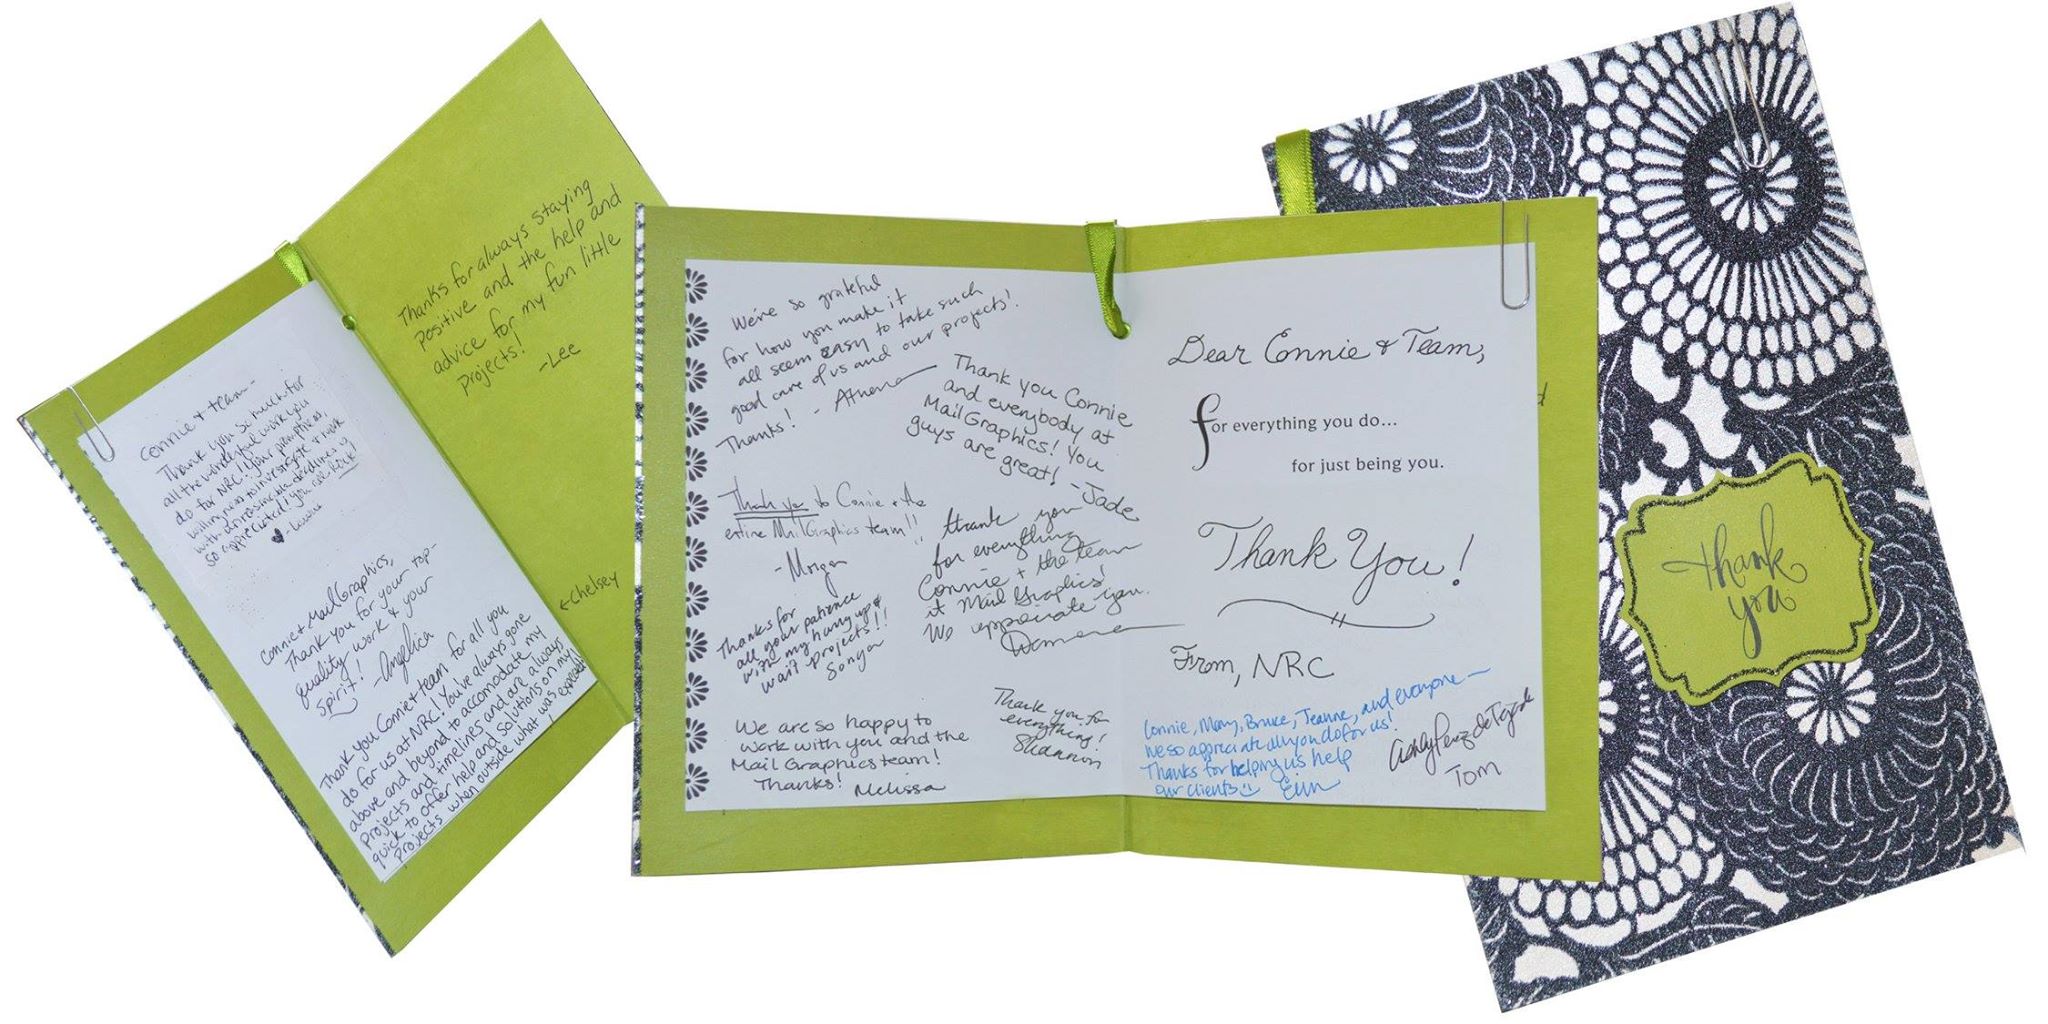 Connie + team -
Thank you so much for
all the wonderful work you
do for NRC! Your promptness,
willingness to investigate + work
with unreasonable deadlines is
so appreciated! You all rock!
Connie + MailGraphics,
Thank you for your top-
quality work & your
spirit!
-Angelica
Thank you Connie + team for all you
do for us at NRC! You've always gone
above and beyond to accomodate my
projects and timelines and are always
quick to offer help and solutions on my
projects when outside what was expected!
Thanks for always staying
positive and the help and
advice for my fun little
projects!
-Lee
←Chelsey
We're so grateful
for how you make it
all seem easy to take such
good care of us and our projects!
Thanks! - Athena
Thank you Connie
and everybody at
MailGraphics! You
guys are great! -Jade
Thank you to Connie + the
entire MailGraphics team!!
-Morgan
thank you
for everything
Connie + the team
at Mail Graphics!
We appreciate you.
Thanks for
all your patience
with my hurry up &
wait projects!!
Sonya
We are so happy to
work with you and the
Mail Graphics team!
Thanks! Melissa
Thank you for
everything!
Shannon
Dear Connie & Team,
for everything you do...
for just being you.
Thank You!
From, NRC
Connie, Mary, Bruce, Jeanne, and everyone —
We so appreciate all you do for us!
Thanks for helping us help
our clients Erin
Ashley Perez de Tejada
Tom
thank
you